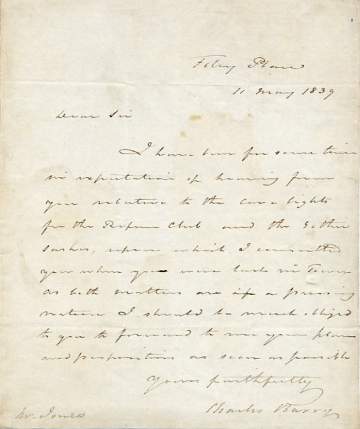 Foley Place
11 May 1839
Dear Sir
I have been for some time
in expectation of hearing from
you relative to the cove lights
for the Reform Club and the
Sashes, upon which I consulted
you when you were last in Town
as both matters are of a pressing
nature I should be much obliged
to you to forward to me your plans
and propositions as soon as possible
Yours faithfully
Charles Barry
Mr. Jones